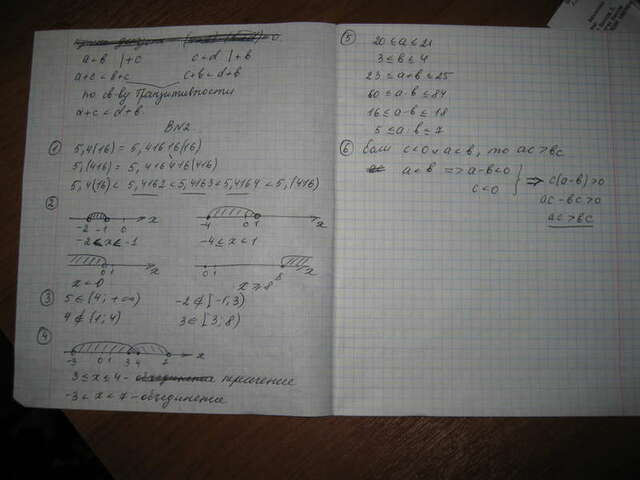 a<b |+c     c<d |+b
a+c<b+c     c+b<d+b
по св-ву транзитивности
a+c<d+b
В N2
① 5,4(16) = 5,41616(16)
5,(416) = 5,416416(416)
5,4(16) < 5,4162 < 5,4163 < 5,4164 < 5,(416)
②
-2 -1 0 x     -4 0 1 x
-2 ≤ x ≤ -1     -4 ≤ x < 1
0 1 x     0 1 8 x
x < 0     x ≥ 8
③ 5 ∈ (4; +∞)     -2 ∉ [-1; 3)
4 ∉ (1; 4)     3 ∈ [3; 8)
④
-3 0 1 3 4 7 x
3 ≤ x ≤ 4 - объединение пересечение
-3 < x < 7 - объединение
⑤ 20 ≤ a ≤ 21
3 ≤ b ≤ 4
23 ≤ a+b ≤ 25
60 ≤ a·b ≤ 84
16 ≤ a-b ≤ 18
5 ≤ a:b ≤ 7
⑥ Если c<0 и a<b, то ac>bc
a<b => a-b<0
c<0
=> c(a-b)>0
ac-bc>0
ac>bc